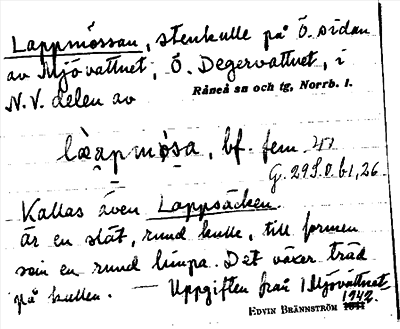 Lappmössan, stenkulle på Ö. sidan
av Mjövattnet, Ö. Degervattnet, i
N.V. delen av Råneå sn och tg, Norrb. l.
lɑ̀ḁpmø̀sa, bf. fem.
G. 29 S.O. b1,26.
Kallas även Lappsäcken.
är en slät, rund kulle, till formen
som en rund limpa. Det växer träd
på kullen. — Uppgiften från 1 Mjövattnet
EDVIN BRÄNNSTRÖM 1942.